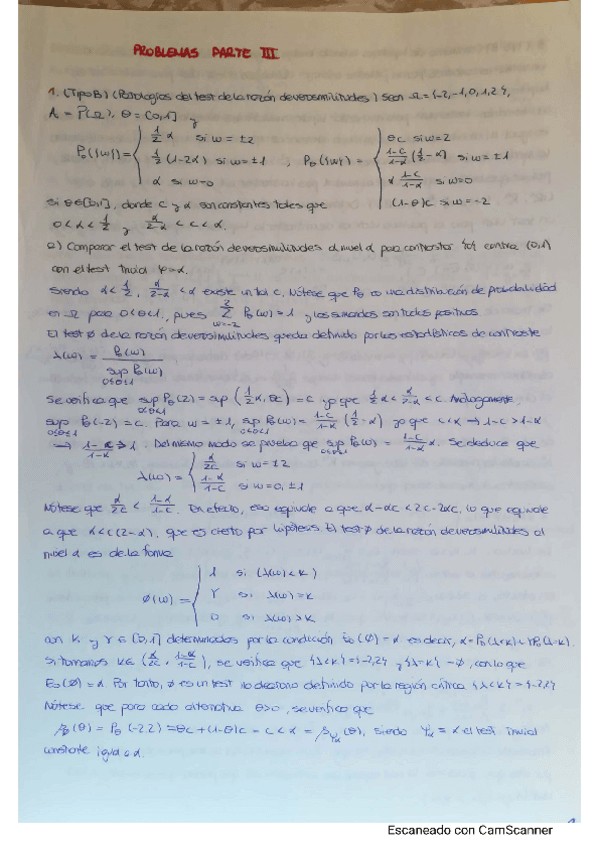 PROBLEMAS PARTE III
1. (Tipo B) (Patologías del test de la razón de verosimilitudes) Sean Ω = {-2,-1,0,1,2},
A = P(Ω), Θ = [0,1] y
P₀({ω}) = { ½ α si ω = ±2 ; ½ (1-2α) si ω = ±1 ; α si ω = 0 , P_θ({ω}) = { θc si ω = 2 ; (1-c)/(1-α) (½ - α) si ω = ±1 ; α (1-c)/(1-α) si ω = 0 ; (1-θ)c si ω = -2
si θ ∈ [0,1], donde c y α son constantes tales que
0 < α < ½ y α/(2-α) < c < α.
a) Comparar el test de la razón de verosimilitudes al nivel α para contrastar {0} contra (0,1]
con el test trivial φ = α.
Siendo α < ½, α/(2-α) < α existe un tal c. Nótese que P_θ es una distribución de probabilidad
en Ω para 0≤θ≤1, pues Σ_{ω=-2}^{2} P_θ(ω) = 1 y los sumandos son todos positivos.
El test φ de la razón de verosimilitudes queda definido por los estadísticos de contraste
λ(ω) = P₀(ω) / sup_{0≤θ≤1} P_θ(ω)
Se verifica que sup_{0≤θ≤1} P_θ(2) = sup (½ α, θc) = c ya que ½ α < α/(2-α) < c. Análogamente,
sup_{0≤θ≤1} P_θ(-2) = c. Para ω = ±1, sup_{0≤θ≤1} P_θ(ω) = (1-c)/(1-α) (½ - α) ya que c<α ⇒ 1-c > 1-α
⇒ (1-c)/(1-α) > 1. Del mismo modo se prueba que sup_{0≤θ≤1} P_θ(ω) = (1-c)/(1-α) α. Se deduce que
λ(ω) = { α/2c si ω = ±2 ; (1-α)/(1-c) si ω = 0, ±1
Nótese que α/2c < (1-α)/(1-c). En efecto, eso equivale a que α-αc < 2c-2αc, lo que equivale
a que α < c(2-α), que es cierto por hipótesis. El test φ de la razón de verosimilitudes al
nivel α es de la forma
φ(ω) = { 1 si λ(ω) < k ; γ si λ(ω) = k ; 0 si λ(ω) > k
con k y γ ∈ [0,1] determinados por la condición E₀(φ) = α es decir, α = P₀(λ<k) + γP₀(λ=k).
Si tomamos k ∈ (α/2c, (1-α)/(1-c)), se verifica que {λ<k} = {-2,2} y {λ=k} = ∅, con lo que
E₀(φ) = α. Por tanto, φ es un test no aleatorio definido por la región crítica {λ<k} = {-2,2}
Nótese que para cada alternativa θ>0, se verifica que
β_φ(θ) = P_θ(-2,2) = θc + (1-θ)c = c < α = β_{φα}(θ), siendo φ_α = α el test trivial
constante igual a α.
Escaneado con CamScanner